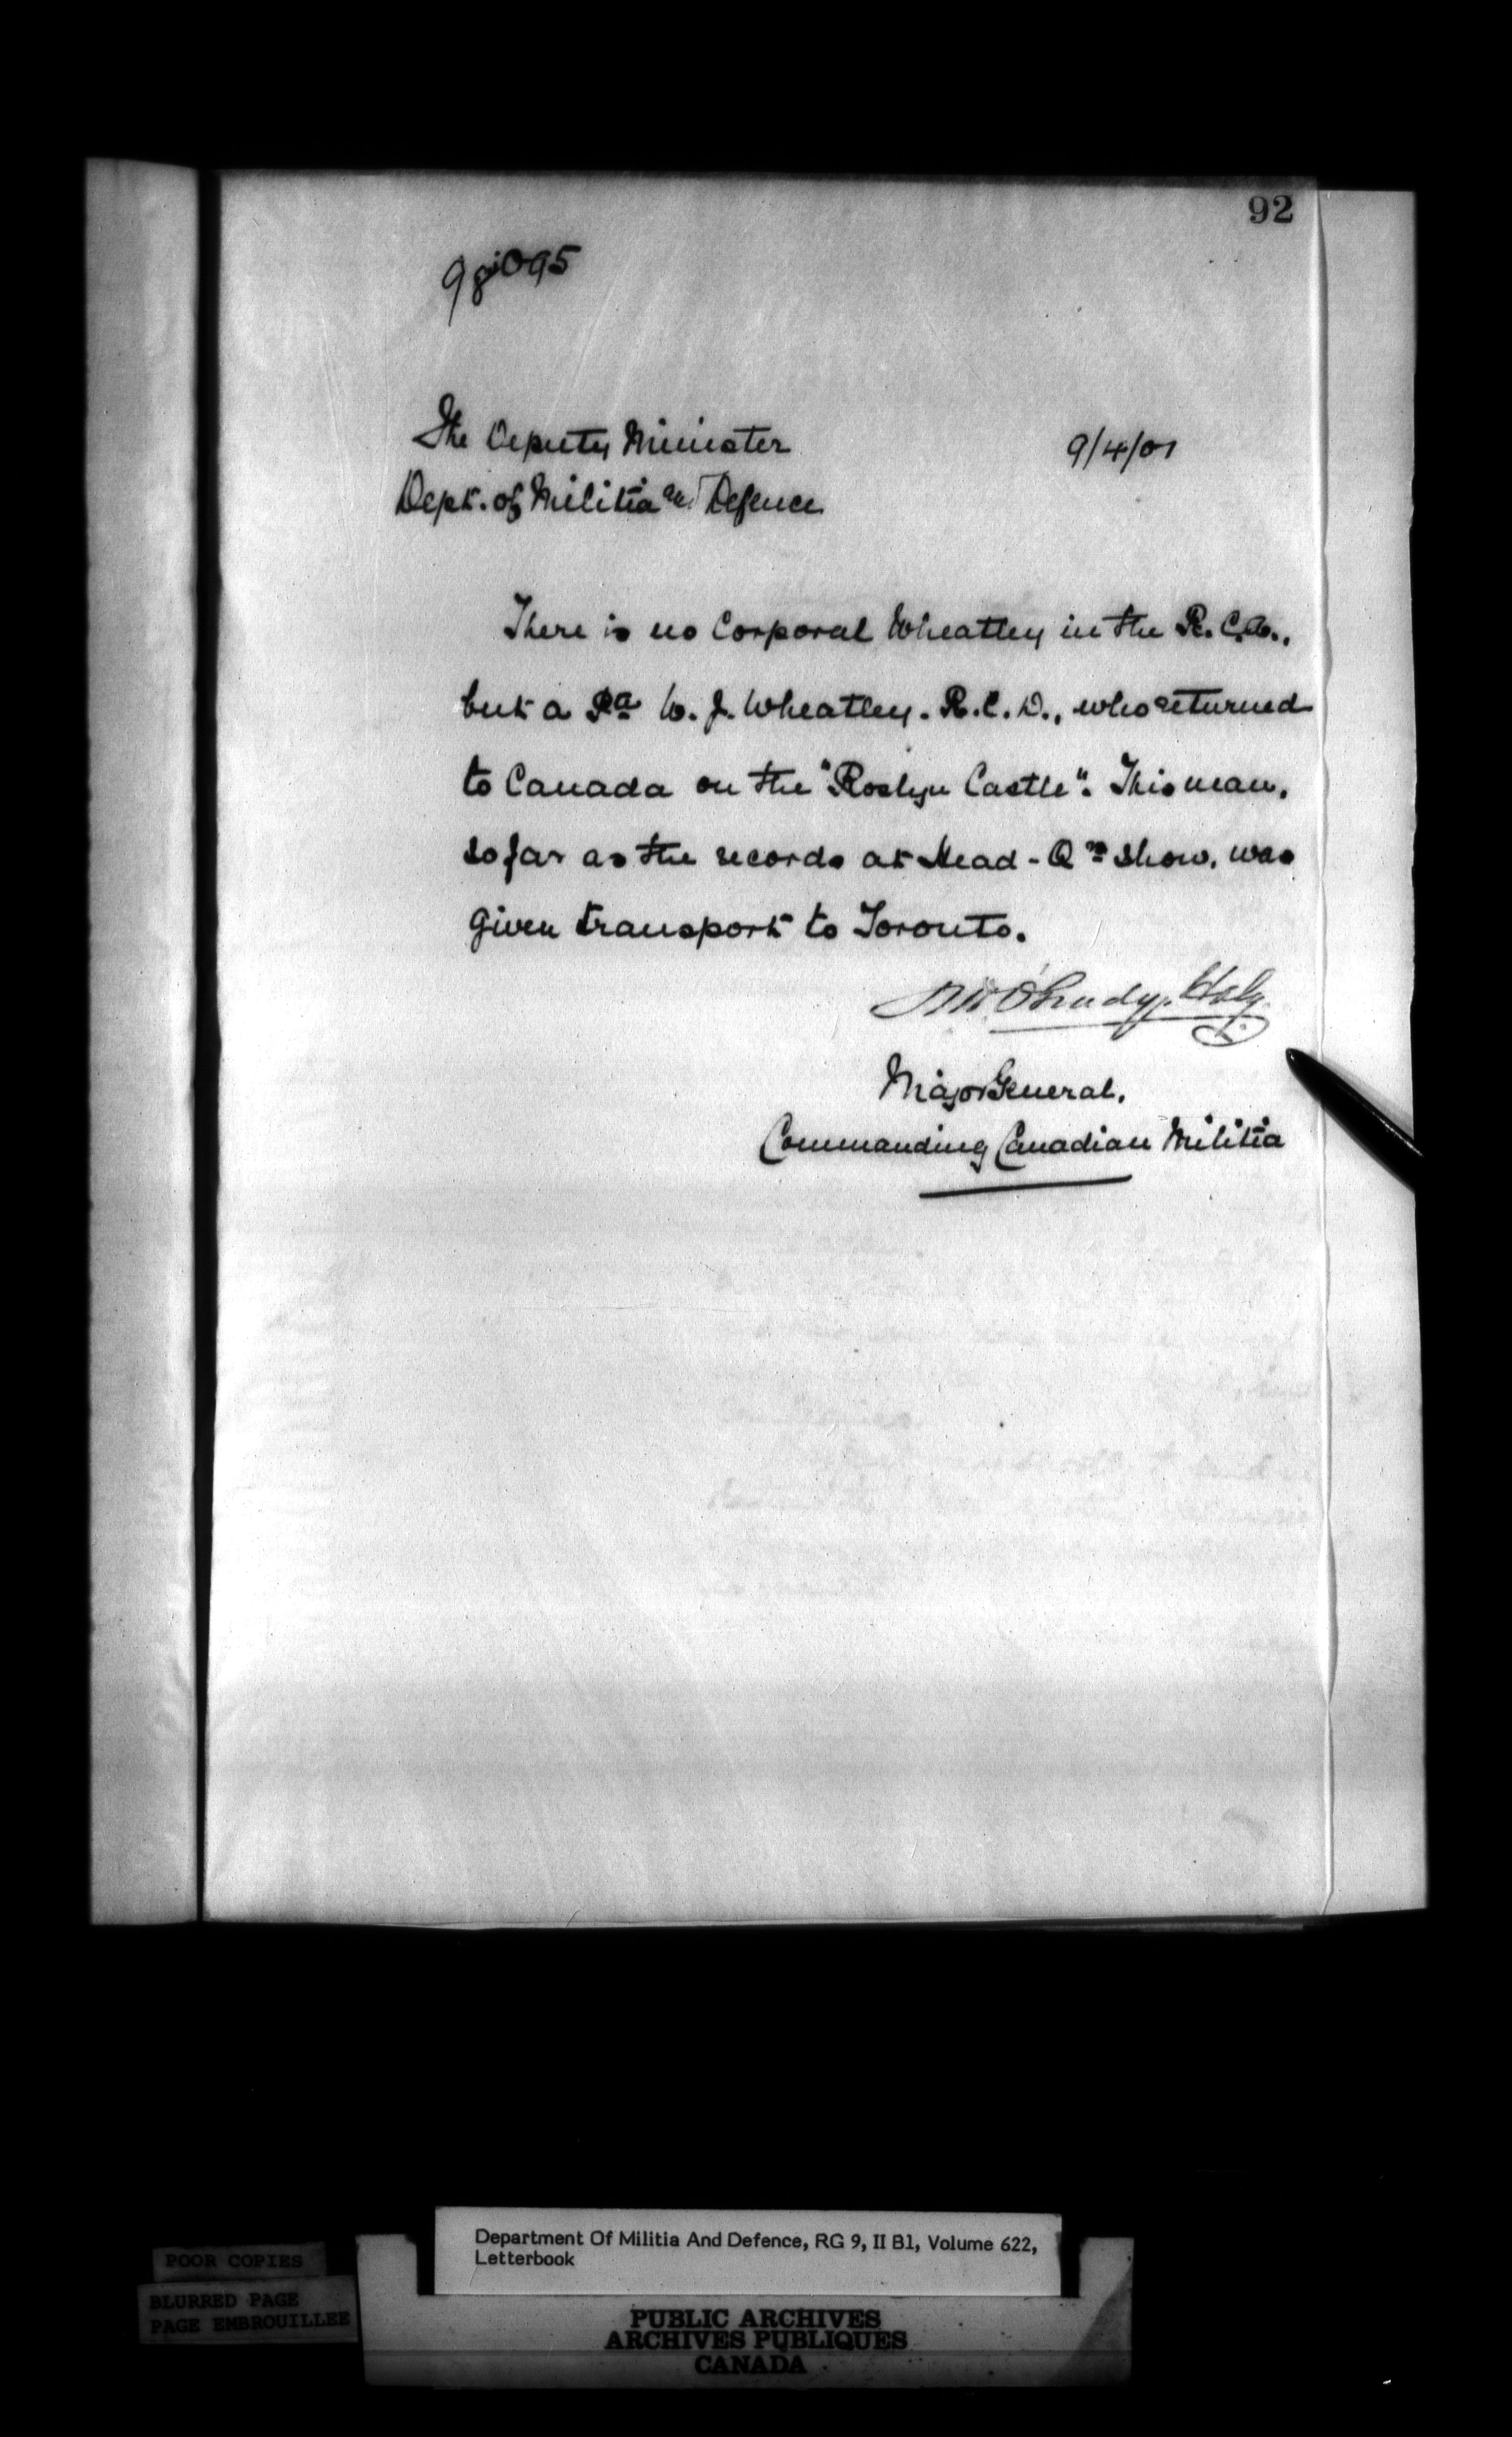 92
The Deputy Minister
9/4/01
Dept. of Militia and Defence
There is no Corporal Wheatley in the R.C.A.,
but a Pa W. J. Wheatley. R.C.D., who returned
to Canada on the "Roslyn Castle". This man,
so far as the records at Head-Qrs show, was
given transport to Toronto.
Major General,
Commanding Canadian Militia
Department Of Militia And Defence, RG 9, II B1, Volume 622,
Letterbook
POOR COPIES
BLURRED PAGE
PAGE EMBROUILLEE
PUBLIC ARCHIVES
ARCHIVES PUBLIQUES
CANADA